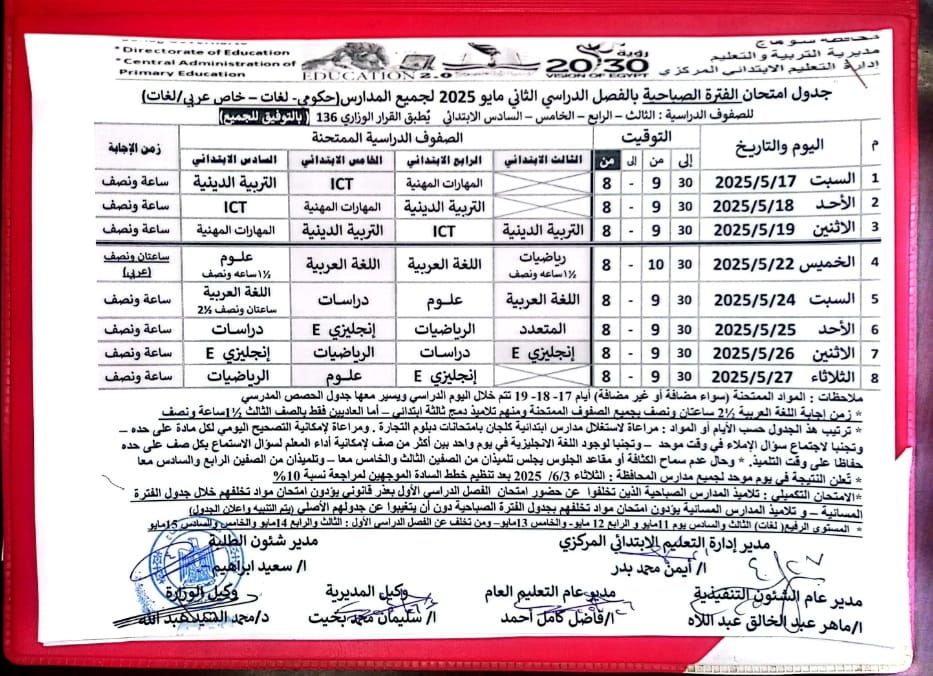 *Directorate of Education
*Central Administration of
Primary Education
EDUCATION 2.0
رؤية
2030
VISION OF EGYPT
محافظة سوهاج
مديرية التربية والتعليم
إدارة التعليم الابتدائي المركزي
جدول امتحان الفترة الصباحية بالفصل الدراسي الثاني مايو 2025 لجميع المدارس (حكومي- لغات – خاص عربي/لغات)
للصفوف الدراسية : الثالث – الرابع – الخامس – السادس الابتدائي يُطبق القرار الوزاري 136 (بالتوفيق للجميع)
م اليوم والتاريخ التوقيت الصفوف الدراسية الممتحنة زمن الإجابة
إلى من إلى من الثالث الابتدائي الرابع الابتدائي الخامس الابتدائي السادس الابتدائي
1 السبت 2025/5/17 30 9 - 8 المهارات المهنية ICT التربية الدينية ساعة ونصف
2 الأحد 2025/5/18 30 9 - 8 التربية الدينية المهارات المهنية ICT ساعة ونصف
3 الاثنين 2025/5/19 30 9 - 8 التربية الدينية ICT التربية الدينية المهارات المهنية ساعة ونصف
4 الخميس 2025/5/22 30 10 - 8 رياضيات ١½ساعه ونصف اللغة العربية اللغة العربية علـوم ١½ساعه ونصف ساعتان ونصف (عربي)
5 السبت 2025/5/24 30 9 - 8 اللغة العربية علـوم دراسات اللغة العربية ساعتان ونصف 2½ ساعة ونصف
6 الأحد 2025/5/25 30 9 - 8 المتعدد الرياضيات إنجليزي E دراسات ساعة ونصف
7 الاثنين 2025/5/26 30 9 - 8 إنجليزي E دراسات الرياضيات إنجليزي E ساعة ونصف
8 الثلاثاء 2025/5/27 30 9 - 8 إنجليزي E علـوم الرياضيات ساعة ونصف
ملاحظات : المواد الممتحنة (سواء مضافة أو غير مضافة) أيام 17- 18- 19 تتم خلال اليوم الدراسي ويسير معها جدول الحصص المدرسي
* زمن إجابة اللغة العربية 2½ ساعتان ونصف بجميع الصفوف الممتحنة ومنهم تلاميذ دمج ثالثة ابتدائي – أما العاديين فقط بالصف الثالث 1½ساعة ونصف
* ترتيب هذ الجدول حسب الأيام أو المواد : مراعاة لاستغلال مدارس ابتدائية كلجان بامتحانات دبلوم التجارة . ومراعاة لإمكانية التصحيح اليومي لكل مادة على حده –
وتجنبا لاجتماع سؤال الإملاء في وقت موحد – وتجنبا لوجود اللغة الانجليزية في يوم واحد بين أكثر من صف لإمكانية أداء المعلم لسؤال الاستماع بكل صف على حده
حفاظا على وقت التلميذ. * وحال عدم سماح الكثافة أو مقاعد الجلوس يجلس تلميذان من الصفين الثالث والخامس معا – وتلميذان من الصفين الرابع والسادس معا
* تُعلن النتيجة في يوم موحد لجميع مدارس المحافظة : الثلاثاء 6/3/ 2025 بعد تنظيم خطط السادة الموجهين لمراجعة نسبة 10%
*الامتحان التكميلي : تلاميذ المدارس الصباحية الذين تخلفوا عن حضور امتحان الفصل الدراسي الأول بعذر قانوني يؤدون امتحان مواد تخلفهم خلال جدول الفترة
المسائية – و تلاميذ المدارس المسائية يؤدون امتحان مواد تخلفهم بجدول الفترة الصباحية دون أن يتغيبوا عن جدولهم الأصلي (يتم التنبيه واعلان الجدول)
* المستوى الرفيع( لغات) الثالث والسادس يوم 11مايو و الرابع 12 مايو- والخامس 13مايو– ومن تخلف عن الفصل الدراسي الأول : الثالث والرابع 14مايو والخامس والسادس 15مايو
مدير إدارة التعليم الابتدائي المركزي
مدير شئون الطلبة
ا/ أيمن محمد بدر
ا/ سعيد ابراهيم
مدير عام الشئون التنفيذية
مدير عام التعليم العام
وكيل المديرية
وكيل الوزارة
ا/ماهر عبد الخالق عبد اللاه
ا/فاضل كامل أحمد
ا/ سليمان محمد بخيت
د/محمد السيد عبد الله